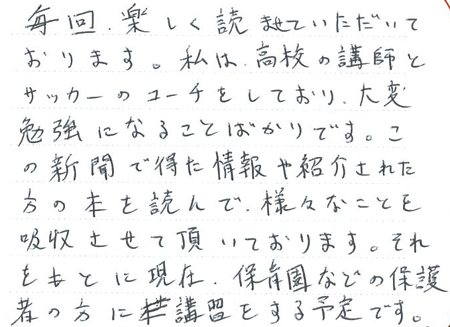 毎回、楽しく読ませていただいて
おります。私は、高校の講師と
サッカーのコーチをしており、大変
勉強になることばかりです。こ
の新聞で得た情報や紹介された
方の本を読んで、様々なことを
吸収させて頂いております。それ
をもとに現在、保育園などの保護
者の方に講習をする予定です。